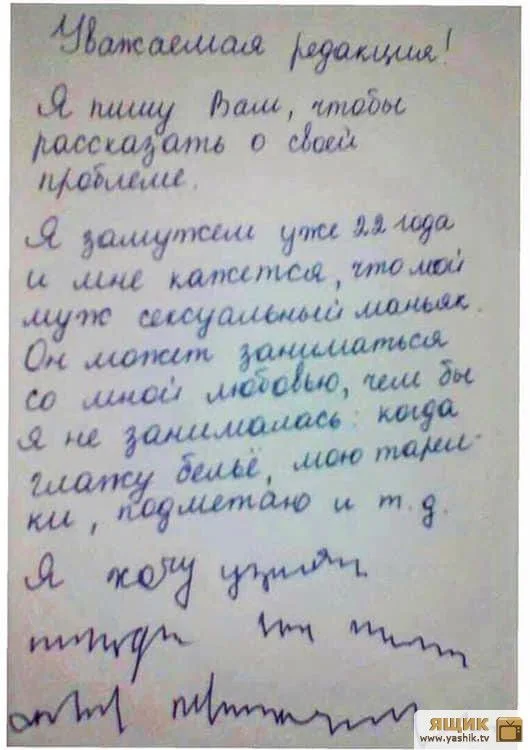 Уважаемая редакция!
Я пишу Вам, чтобы
рассказать о своей
проблеме.
Я замужем уже 22 года
и мне кажется, что мой
муж сексуальный маньяк.
Он может заниматься
со мной любовью, чем бы
я не занималась: когда
глажу бельё, мою тарел-
ки, подметаю и т.д.
Я хочу
ЯЩИК
www.yashik.tv